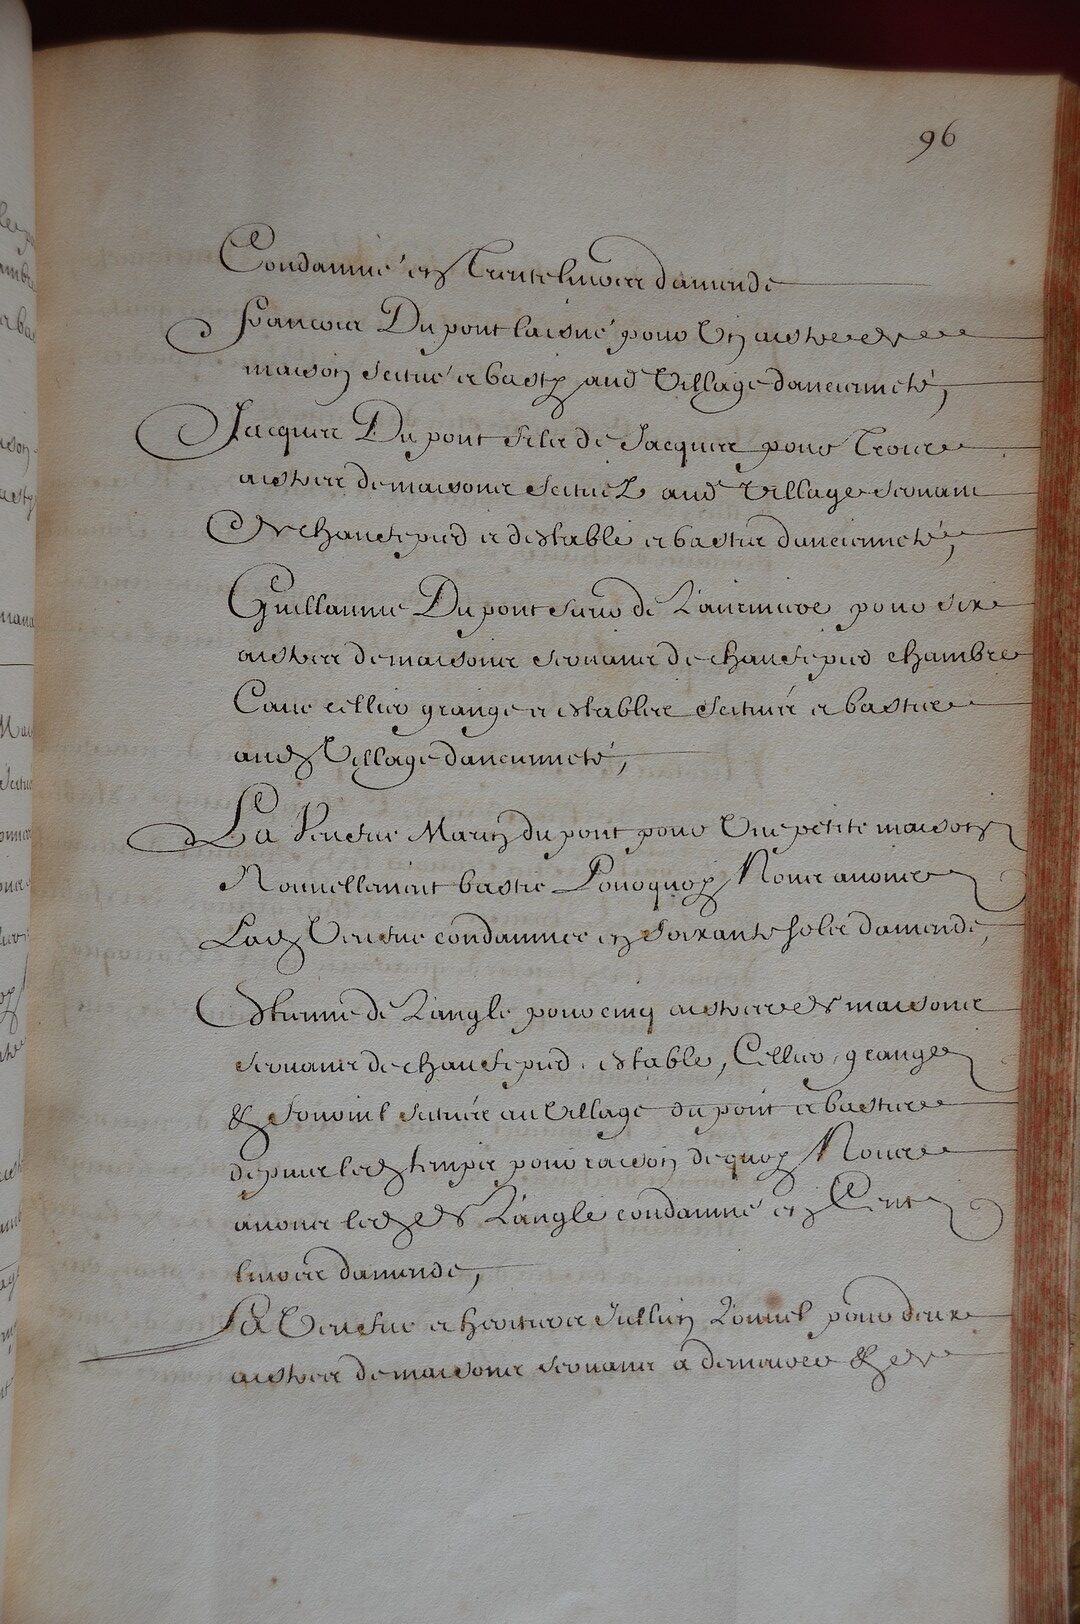 96
Condamné en Trente livres damende
Francois Du pont laisné pour Un astre de
maison scitué et basty aud Village dancienneté,
Jacques Du pont fils de Jacques pour Trois
astres de maisons scituez aud Village servant
de chaufepied et destable et bastis dancienneté,
Guillaume Du pont sieur de pour six
astres de maisons servans de chaufepied chambre
Cave cellier grange et estables scitués et bastis
aud Village dancienneté,
La Veufve Marin du pont pour Une petite maison
Nouvellement bastie Pourquoy Nous avons
Lad Veufve condamnee en soixante sols damende,
Estienne de Langle pour cinq astres de maisons
servans de chaufepied, estable, Cellier, grange
& fournil scitués au Village du pont et bastis
depuis led temps pour raison de quoy Nous
avons led de Langle condamné en Cent
livres damende,
La Veufve et heritiers Jullien pour deux
astres de maisons servans a demeurer & de